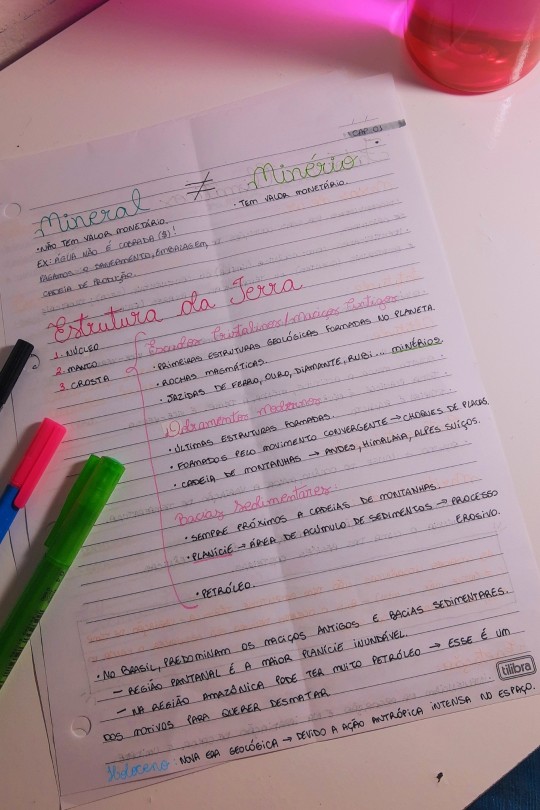 CAP. 03
Mineral ≠ Minério
• NÃO TEM VALOR MONETÁRIO.
• TEM VALOR MONETÁRIO.
EX: ÁGUA NÃO É COBRADA ($)!
PAGAMOS O SANEAMENTO, EMBALAGEM,
CADEIA DE PRODUÇÃO.
Estrutura da Terra
1. NÚCLEO
2. MANTO
3. CROSTA
Escudos Cristalinos/Maciços Antigos
• PRIMEIRAS ESTRUTURAS GEOLÓGICAS FORMADAS NO PLANETA
• ROCHAS MAGMÁTICAS.
• JAZIDAS DE FERRO, OURO, DIAMANTE, RUBI... MINÉRIOS
Dobramentos Modernos
• ÚLTIMAS ESTRUTURAS FORMADAS.
• FORMADOS PELO MOVIMENTO CONVERGENTE → CHOQUES DE PLACAS.
• CADEIA DE MONTANHAS → ANDES, HIMALAIA, ALPES SUÍÇOS.
Bacias Sedimentares
• SEMPRE PRÓXIMOS A CADEIAS DE MONTANHAS.
• PLANÍCIE → ÁREA DE ACÚMULO DE SEDIMENTOS → PROCESSO
EROSIVO.
• PETRÓLEO.
• NO BRASIL, PREDOMINAM OS MACIÇOS ANTIGOS E BACIAS SEDIMENTARES.
– REGIÃO PANTANAL É A MAIOR PLANÍCIE INUNDÁVEL.
– NA REGIÃO AMAZÔNICA PODE TER MUITO PETRÓLEO → ESSE É UM
DOS MOTIVOS PARA QUERER DESMATAR
tilibra
Holoceno: NOVA ERA GEOLÓGICA → DEVIDO A AÇÃO ANTRÓPICA INTENSA NO ESPAÇO.